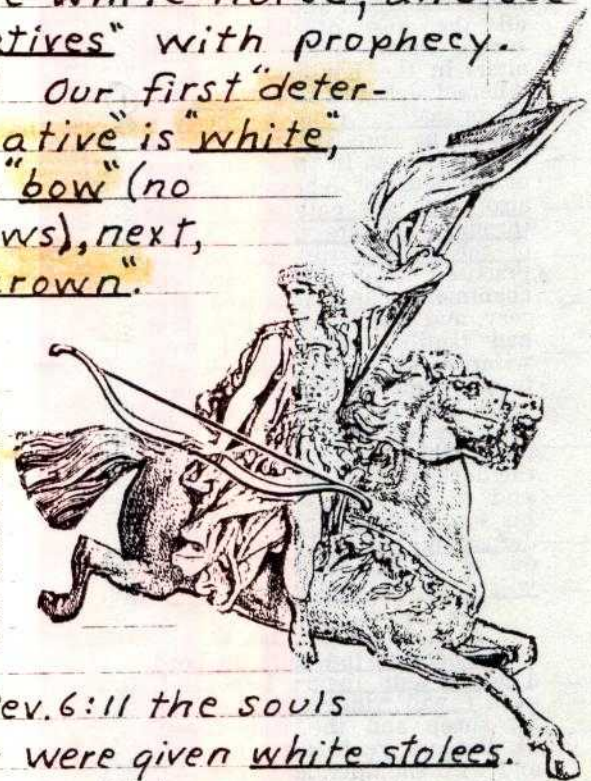 white horse, and see
with prophecy.
Our first "deter-
ative" is "white",
"bow" (no
ws), next,
rown".
ev. 6:11 the souls
were given white stolees.